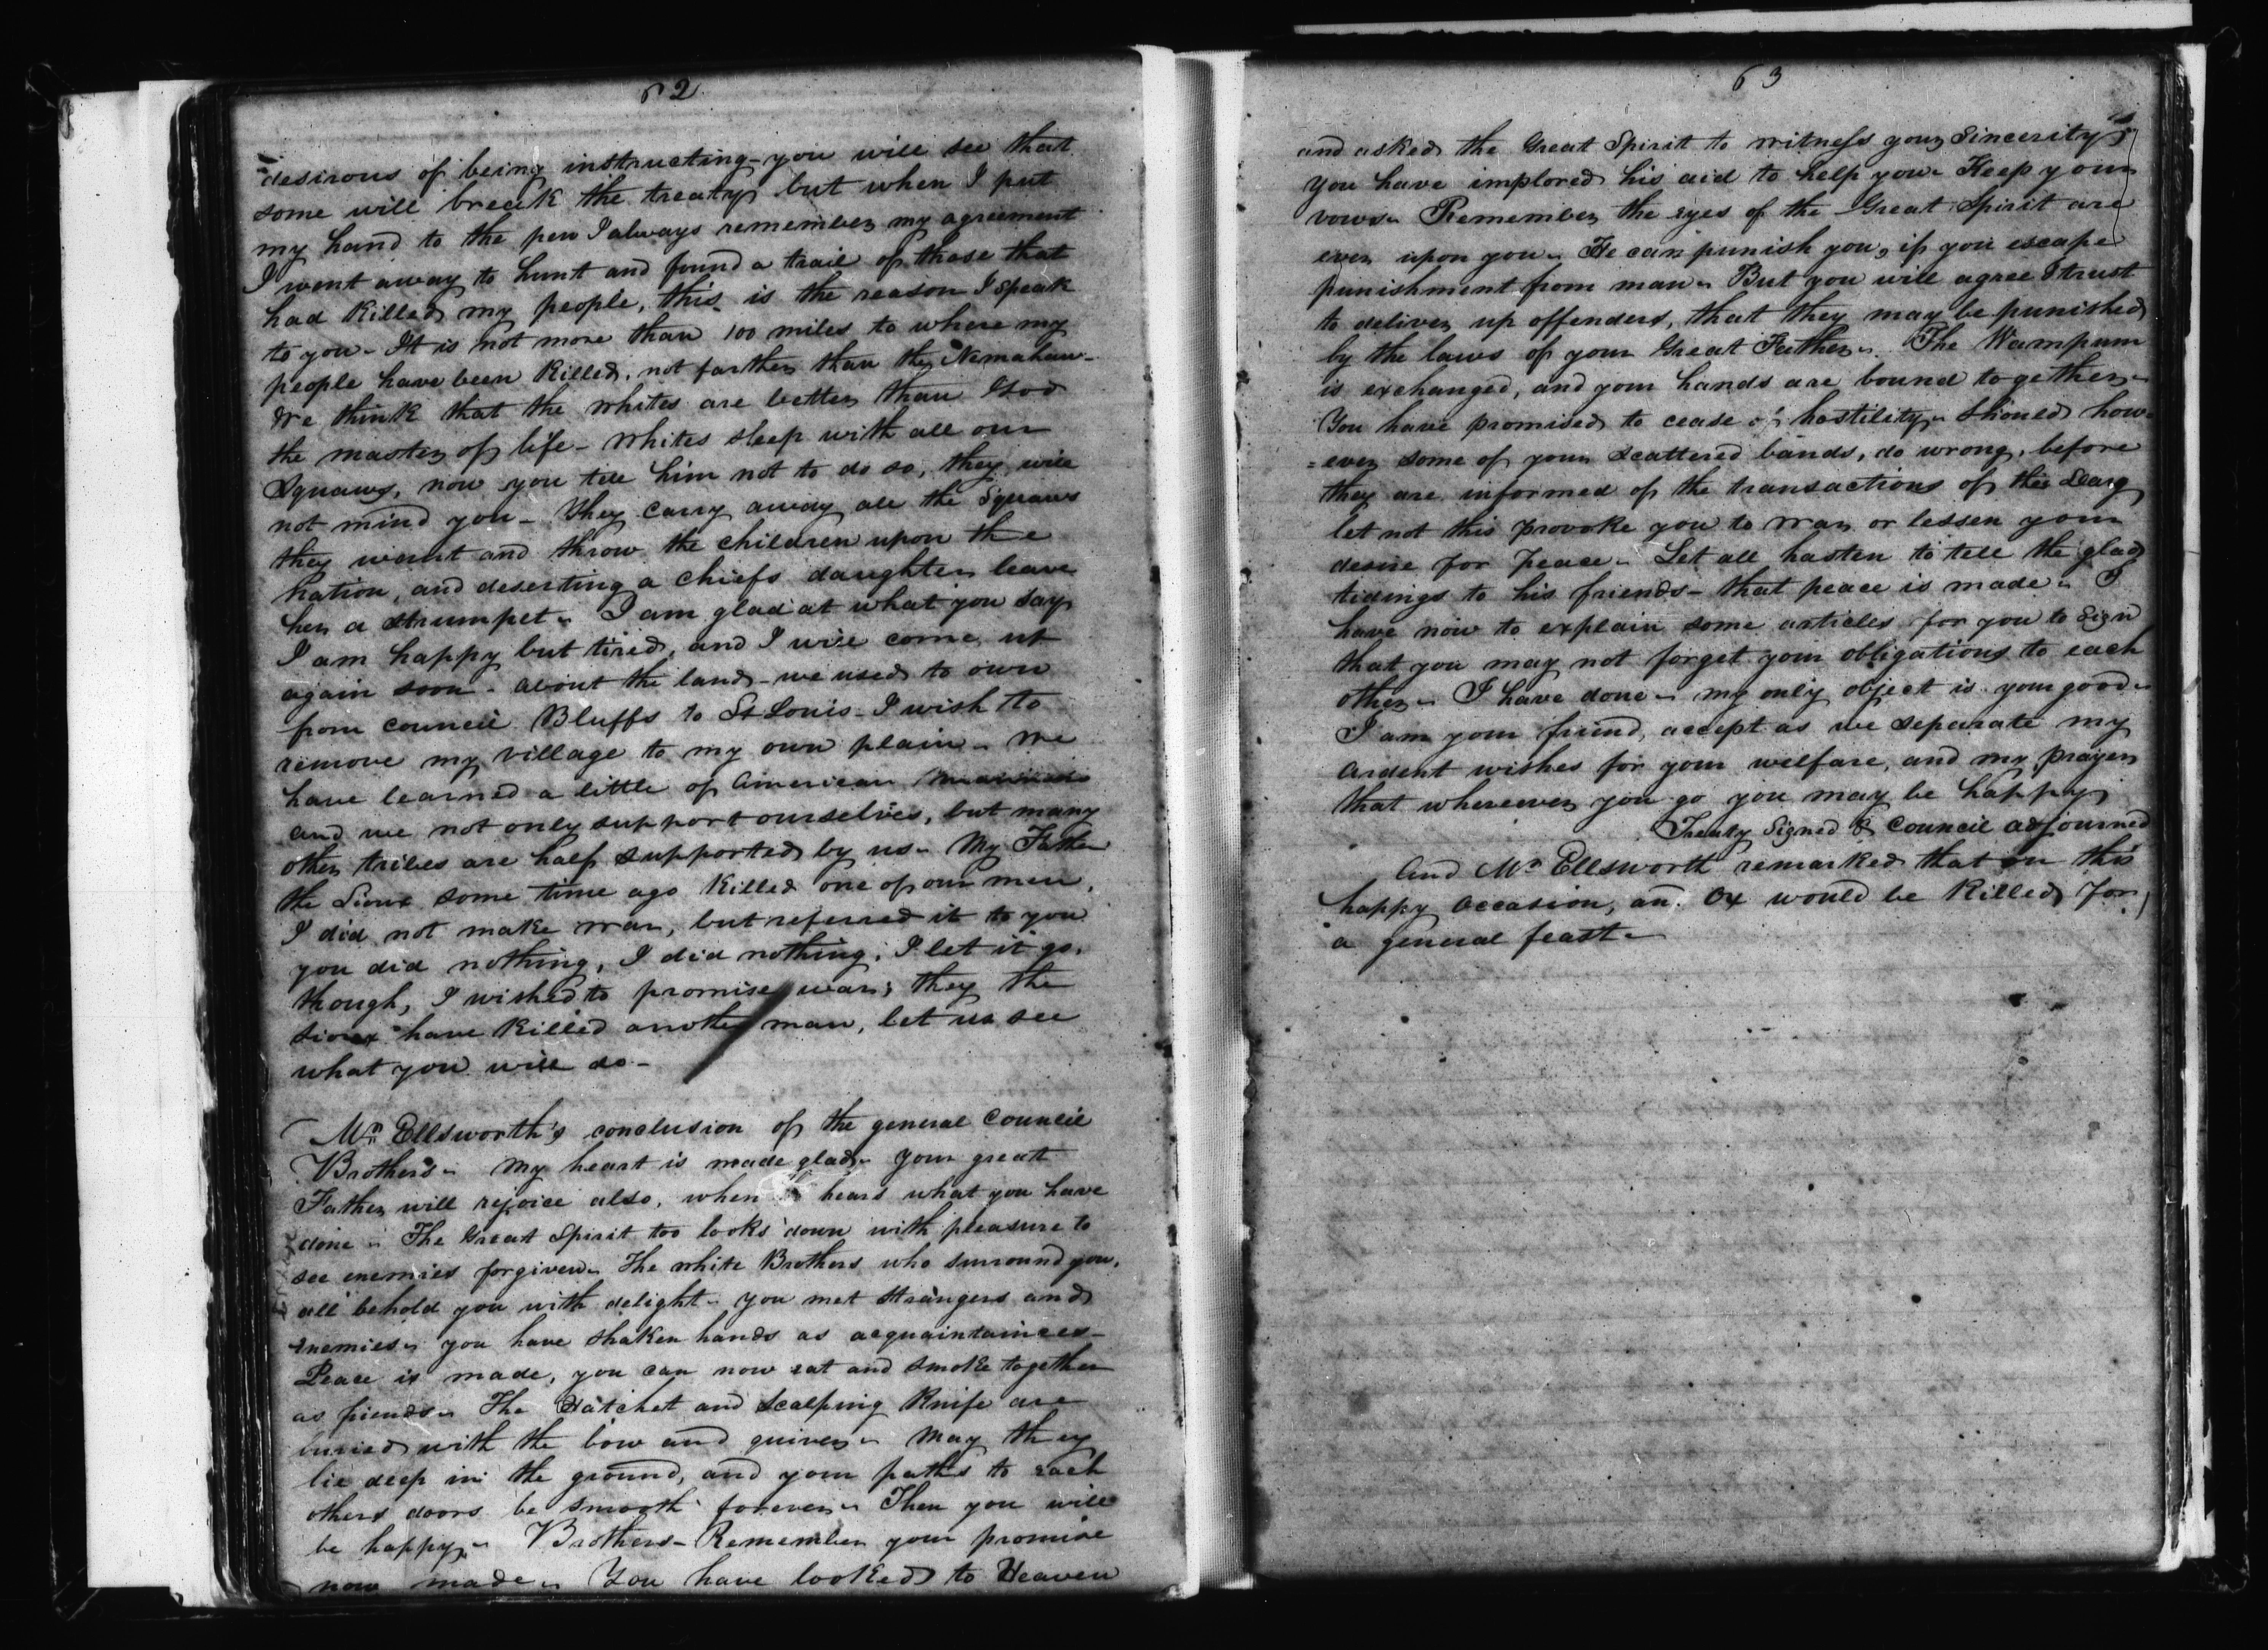 62
desirous of being instructing - you will see that
some will break the treaty but when I put
my hand to the pen I always remember my agreement
I went away to hunt and found a trail of those that
had killed my people, this is the reason I speak
to you - It is not more than 100 miles to where my
people have been killed, not farther than the Nemahaw -
We think that the whites are better than God
the master of life - Whites sleep with all our
Squaws, now you tell him not to do so, they will
not mind you - They carry away all the Squaws
they want and throw the children upon the
Nation, and deserting a chiefs daughter leave
her a strumpet - I am glad at what you say
I am happy but tired, and I will come up
again soon - about the land - we used to own
from council Bluffs to St Louis - I wish to
remove my village to my own plain - We
have learned a little of American
and we not only support ourselves, but many
other tribes are half supported by us - My Father
the Sioux some time ago killed one of our men,
I did not make war, but referred it to you
you did nothing, I did nothing, I let it go,
though, I wished to promise war; they the
Sioux have killed another man, let us see
what you will do -
Mr Ellsworth's conclusion of the general Council
Brothers - My heart is made glad - your great
Father will rejoice also, when hears what you have
done - The Great Spirit too looks down with pleasure to
see enemies forgiven - The white Brothers who surround you,
all behold you with delight - you met strangers and
enemies - you have shaken hands as acquaintainces -
Peace is made, you can now eat and smoke together
as friends - The Hatchet and scalping Knife are
buried with the bow and quiver - May they
lie deep in the ground, and your paths to each
others doors be smooth forever - Then you will
be happy - Brothers - Remember your promise
now made - You have looked to Heaven
63
and asked the Great Spirit to witness your Sincerity
You have implored his aid to help you - Keep your
vows - Remember the eyes of the Great Spirit are
ever upon you - He can punish you, if you escape
punishment from man - But you will agree I trust
to deliver up offenders, that they may be punished
by the laws of your Great Father - The Wampum
is exchanged, and your hands are bound together -
You have promised to cease hostility - Should how-
=ever some of your scattered bands, do wrong, before
they are informed of the transactions of this day
let not this provoke you to war or lessen your
desire for peace - Let all hasten to tell the glad
tidings to his friends - that peace is made - I
have now to explain some articles for you to sign
that you may not forget your obligations to each
other - I have done - my only object is your good -
I am your friend, accept as we separate my
ardent wishes for your welfare, and my prayer
that wherever you go you may be happy
Treaty Signed & Council adjourned
And Mr Ellsworth remarked that on this
happy occasion, an Ox would be killed for
a general feast -